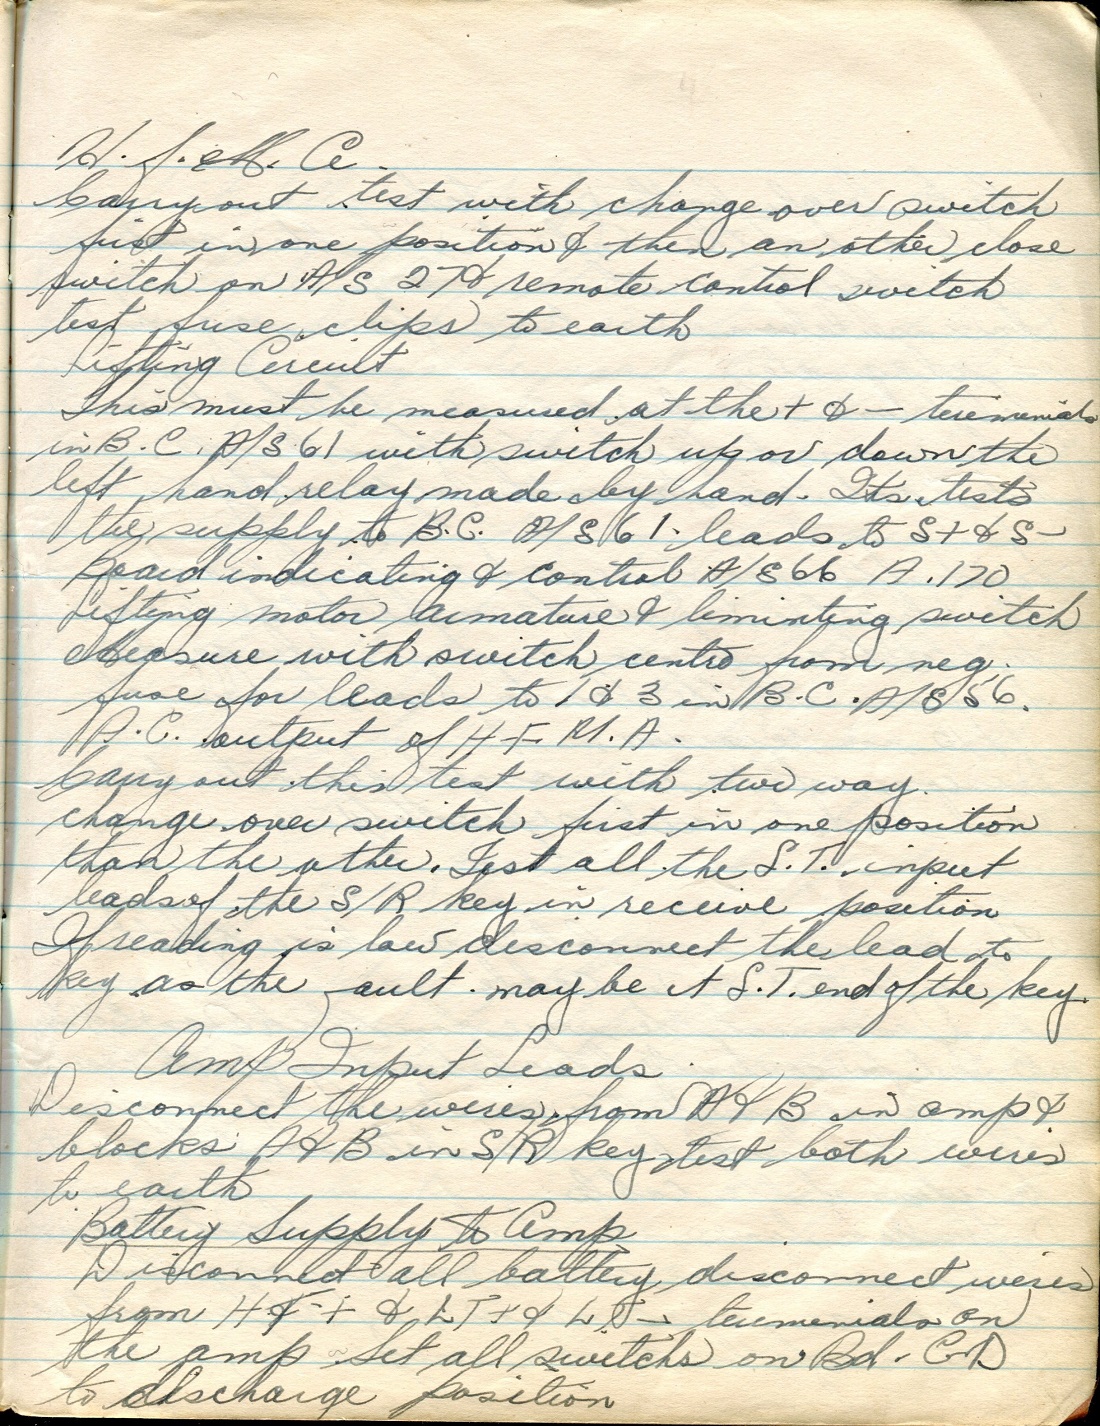 H. f. M. Ce.
Carry out test with change over switch
fist in one position & then an other close
switch on A/S 27 & remote control switch
test fuse clips to earth
Lifting Cercuit
This must be measured at the + & - teremenials
in B.C. A/S 61 with switch up or down the
left hand relay made by hand. Its tests
the supply to B.C. A/S 61. leads to S+ & S-
Board indicating & control A/S 66 A.170
Lifting motor armature & liminting switch
Measure with switch centre from neg.
fuse for leads to 1 & 3 in B.C. A/S 56.
A.C. output of H F M.A.
Carry out this test with two way.
change over switch first in one position
than the other. Test all the S.T. input
leads of the S/R key in receive position
If reading is low disconnect the lead to
key as the fault. may be at S.T. end of the key.
Amp Input Leads
Disconnect the weires from A & B in amp &
blocks A & B in S/R key test both weires
to earth
Battery Supply to Amp
Disconnect all battery disconnect weires
from H F + & LT + & LT - teremenials on
the amp Set all switchs on Bd. C-D
to discharge position